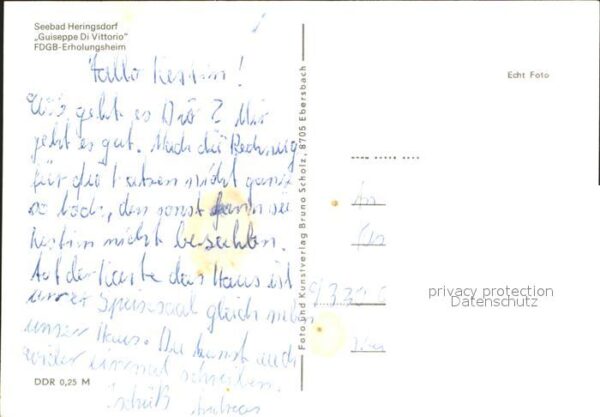 Seebad Heringsdorf
„Guiseppe Di Vittorio"
FDGB-Erholungsheim
Hallo Kerstin!
Wie geht es Dir? Mir
geht es gut. Mach die Rechnung
für die Katzen nicht ganz
so hoch, den sonst kann sie
Kerstin nicht bezahlen.
Auf der Karte das Haus ist
unser Speisesaal gleich neben
unser Haus. Du kannst auch
wider einmal schreiben.
Tschüß Andreas
DDR 0,25 M
Foto und Kunstverlag Bruno Scholz, 8705 Ebersbach
Echt Foto
An
privacy protection
Datenschutz